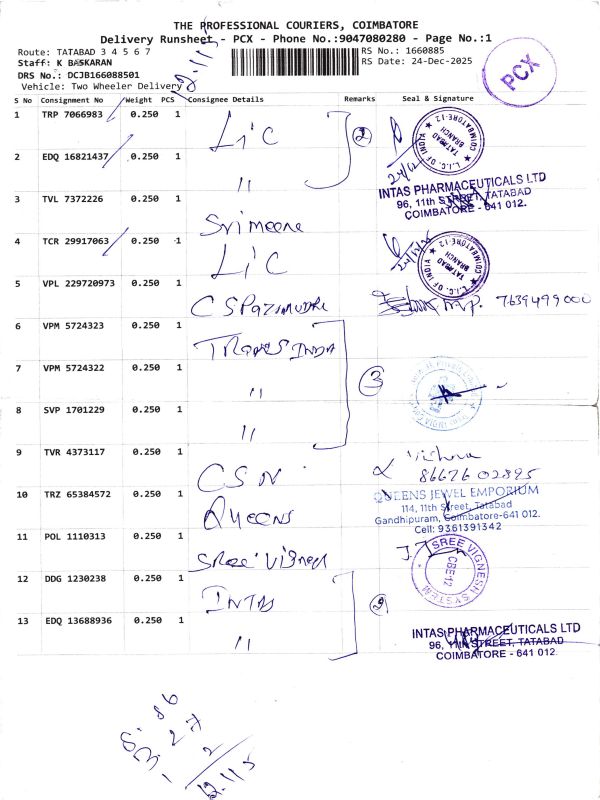 THE PROFESSIONAL COURIERS, COIMBATORE
Delivery Runsheet - PCX - Phone No.:9047080280 - Page No.:1
Route: TATABAD 3 4 5 6 7
RS No.: 1660885
Staff: K BASKARAN
RS Date: 24-Dec-2025
DRS No.: DCJB166088501
Vehicle: Two Wheeler Delivery
PCX
S No Consignment No Weight PCS Consignee Details Remarks Seal & Signature
1 TRP 7066983 0.250 1 LIC
2
L.I.C. OF INDIA TATABAD BRANCH COIMBATORE-12
2 EDQ 16821437 0.250 1 "
INTAS PHARMACEUTICALS LTD
96, 11th STREET, TATABAD
COIMBATORE - 641 012.
3 TVL 7372226 0.250 1 Sri meena
4 TCR 29917063 0.250 1 LIC
L.I.C. OF INDIA TATABAD BRANCH COIMBATORE-12
5 VPL 229720973 0.250 1 7639499000
6 VPM 5724323 0.250 1 TRANS INDIA
7 VPM 5724322 0.250 1 "
3
8 SVP 1701229 0.250 1 "
9 TVR 4373117 0.250 1 CSN
8667602895
10 TRZ 65384572 0.250 1 Queens
QUEENS JEWEL EMPORIUM
114, 11th Street, Tatabad
Gandhipuram, Coimbatore-641 012.
Cell: 9361391342
11 POL 1110313 0.250 1 Sree Vignesh
SREE VIGNESH SYSTEM CBE-12
12 DDG 1230238 0.250 1 INTAS
2
13 EDQ 13688936 0.250 1 "
INTAS PHARMACEUTICALS LTD
96, 11th STREET, TATABAD
COIMBATORE - 641 012.